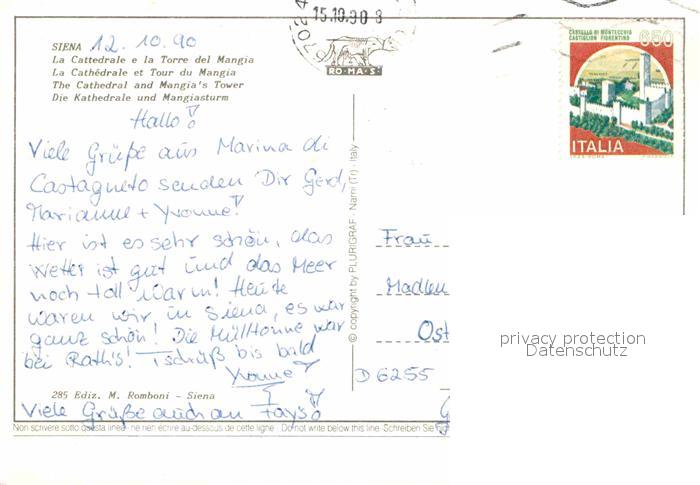 15.10.90 8
ROMA S.
CASTELLO DI MONTECCHIO
CASTIGLION FIORENTINO
650
ITALIA
SIENA 12.10.90
La Cattedrale e la Torre del Mangia
La Cathédrale et Tour du Mangia
The Cathedral and Mangia's Tower
Die Kathedrale und Mangiasturm
Hallo!
Viele Grüße aus Marina di
Castagneto senden Dir Gerd,
Marianne + Yvonne!
Hier ist es sehr schön, das
Wetter ist gut und das Meer
noch toll warm! Heute
waren wir in Siena, es war
ganz schön! Die Mülltonne war
bei Rath's! Tschüß bis bald
Yvonne
285 Ediz. M. Romboni - Siena
Viele Grüße auch an
Non scrivere sotto questa linea - ne rien écrire au-dessous de cette ligne - Do not write below this line - Schreiben Sie
© copyright by PLURIGRAF - Narni (Tr) - Italy
Frau
Madlen
Ost
D 6255
privacy protection
Datenschutz